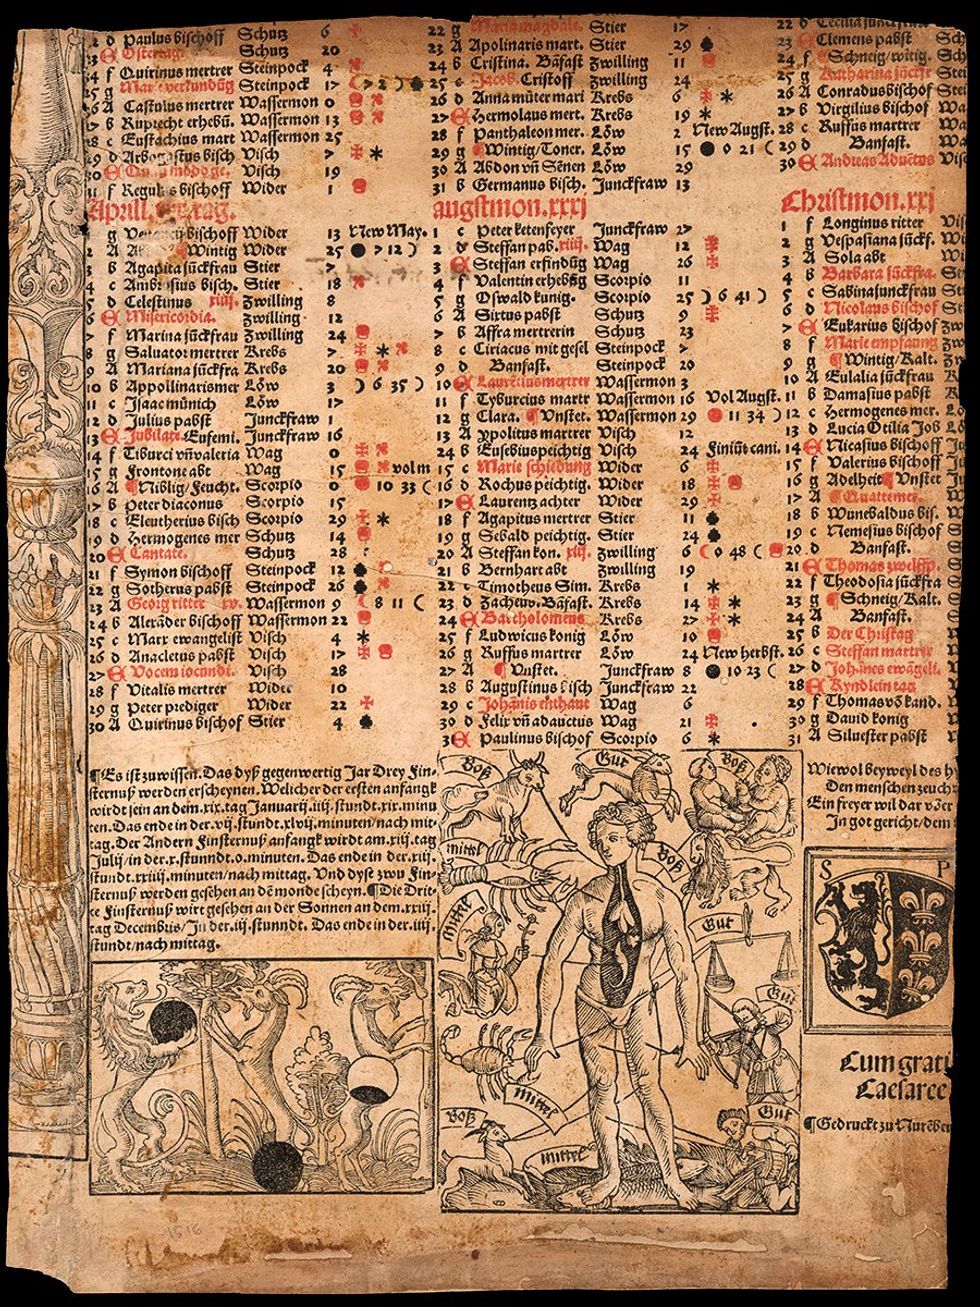 d Paulus bischoff Schutz 6
Ostertag. Schutz 20
f Quirinus mertrer Steinpock 4
g Steinpock 17
26 A Castulus mertrer Wassermon 0
27 b Ruprecht erhebū. Wassermon 13
28 c Eustachius mart Wassermon 25
29 d bisch Visch 7
30 Visch 19
31 f bischoff Wider 1
Aprill. tag.
g bischoff Wider 13 New May.
2 A Wintig Wider 25 7 12
3 b Agapita juckfrau Stier 7
4 c bisch. Stier 18
5 d Celestinus xiiij. Zwilling 8
6 Misericordia. Zwilling 12
7 f Marina juckfrau Zwilling 24
8 g Saluator mertrer Krebs 7
9 A Mariana juckfra Krebs 20
10 b Appollinarismer Löw 3 ) 6 35 )
11 c Isaac münich Löw 17
12 d Julius pabst Junckfraw 1
13 Jubilate. Eufemi. Junckfraw 16
14 f Tiburci vn̄ valeria Wag 0
15 g Frontone abt Wag 15 vol m
16 A ¶Niblig/Feucht. Scorpio 0 10 33 (
17 b Peter diaconus Scorpio 15
18 c Eleutherius bisch Scorpio 29
19 d Hermogenes mer Schutz 14
20 Cantate. Schutz 28
21 f Symon bischoff Steinpock 12
22 g Sotherus pabst Steinpock 26
23 A Georg ritter xv. Wassermon 9 ( 8 11 (
24 b Alexāder bischoff Wassermon 22
25 c Marx ewangelist Visch 4
26 d Anacletus pabst Visch 17
27 Vocem iocundi. Visch 28
28 f Vitalis mertrer Wider 10
29 g Peter prediger Wider 22
30 A Quirinus bischof Stier 4
22 g Maria magdale. Stier 17
23 A Apolinaris mart. Stier 29
24 b Cristina. Bāfast Zwilling 11
25 c Jacob. Cristoff Zwilling 24
26 d Anna müter mari Krebs 6
27 Hermolaus mert. Krebs 19
28 f Panthaleon mer. Löw 2 New Augst.
29 g ¶Wintig/Toner. Löw 15 0 21 (
30 A Abdon vn̄ Sēnen Löw 29
31 b Germanus bisch. Junckfraw 13
augstmon.xxxj
1 c Peter ketenfeyer Junckfraw 27
2 d Steffan pab. xiiij. Wag 12
3 Steffan erfindūg Wag 26
4 f Valentin erhebūg Scorpio 11
5 g Oswald kunig. Scorpio 25 ) 6 41 )
6 A Sixtus pabst Schutz 9
7 b Affra mertrerin Schutz 23
8 c Ciriacus mit gesel Steinpock 7
9 d Banfast. Steinpock 20
10 Laurētius mertrer Wassermon 3
11 f Tyburcius martr Wassermon 16 Vol Augst.
12 g Clara. ¶Vnstet. Wassermon 29 11 34 )
13 A Ypolitus martrer Visch 12
24 b Eusebius peichtig Visch 24 Finiūt cani.
15 c Marie schiedung Wider 6
16 d Rochus peichtig. Wider 18
17 Laurentz achter Wider 29
18 f Agapitus mertrer Stier 11
19 g Sebald peichtig. Stier 24
20 A Steffan kon. xiij. Zwilling 6 ( 0 48 (
21 b Bernhart abt Zwilling 19
22 c Timotheus Sim. Krebs 1
23 d Zacheus. Bāfast. Krebs 14
24 Bartholomeus Krebs 27
25 f Ludwicus konig Löw 10
26 g Ruffus martrer Löw 24 New herbst.
27 A ¶Vnstet. Junckfraw 8 10 23 (
28 b Augustinus bisch Junckfraw 22
29 c Johānis enthaut Wag 6
30 d Felix vn̄ adauctus Wag 21
3 Paulinus bischof Scorpio 6
22 d Cecilia
23 Clemens pabst Sch
24 f ¶Schneig/witig. Sch
25 g Katharina juckfr Stei
26 A Conradus bischof Stei
27 b Virgilius bischof Wa
28 c Ruffus martrer Wa
29 d Banfast. Wa
30 Andreas Aduētus Vis
Christmon.xxxj
1 f Longinus ritter Vis
2 g Vespasiana juckf. Wi
3 A Sola abt Wi
4 b Barbara juckfra. Sti
5 c Sabina junckfrau Sti
6 d Nicolaus bischof
Eukarius bischof Zw
8 f Marie empfaung Zw
9 g ¶Wintig/Kalt. Zw
10 A Eulalia juckfrau K
11 b Damasius pabst K
12 c Hermogenes mer. Lö
13 d Lucia Otilia Job Lö
14 Nicasius bischoff Ju
15 f Valerius bischoff Ju
16 g Adelheit ¶Vnstet Ju
17 A ¶Quattemer.
18 b Wunebaldus bis.
19 c Nemesius bischof S
20 d Banfast. S
21 Thomas zwelffp. S
22 f Theodosia juckfra S
23 g ¶Schneig/Kalt. S
24 A Banfast. S
25 b Der Christag
26 c Steffan martrer
27 d Johānes ewāgeli.
28 Kyndlein tag
29 f Thomas vō kand.
30 g Dauid konig
31 A Siluester pabst
¶Es ist zu wissen. Das dyß gegenwertig Jar Drey Fin-
sternuß werden erscheynen. Welicher der ersten anfangk
wirdt sein an dem .xix. tag Januarij .iiij. stundt .xix. minu
ten. Das ende in der .vij. stundt .xlvij. minuten/nach mit-
tag. Der Andern Finsternuß anfangk wirdt am .xiij. tag
Julij/in der .x. stunndt .o. minuten. Das ende in der .xiij.
stundt .xxiiij. minuten/nach mittag. Vnd dyse zwu Fin-
sternuß werden gesehen an dē monde scheyn. ¶Die Drit-
te Finsternuß wirt gesehen an der Sonnen an dem .xxiij.
tag Decembris/In der .iij. stunden. Das ende in der .iiij.
stundt/nach mittag.
Böß
Gut
Böß
mittel
Böß
Mittel
Gut
Gut
Mittel
Böß
mittel
Gut
Wiewol beyweyl des hy
Den menschen zeuch
Ein freyer wil dar vōer
In got gericht/dem
S P
Cum grati
Caesaree
¶Gedruckt zu Nurēber
1616